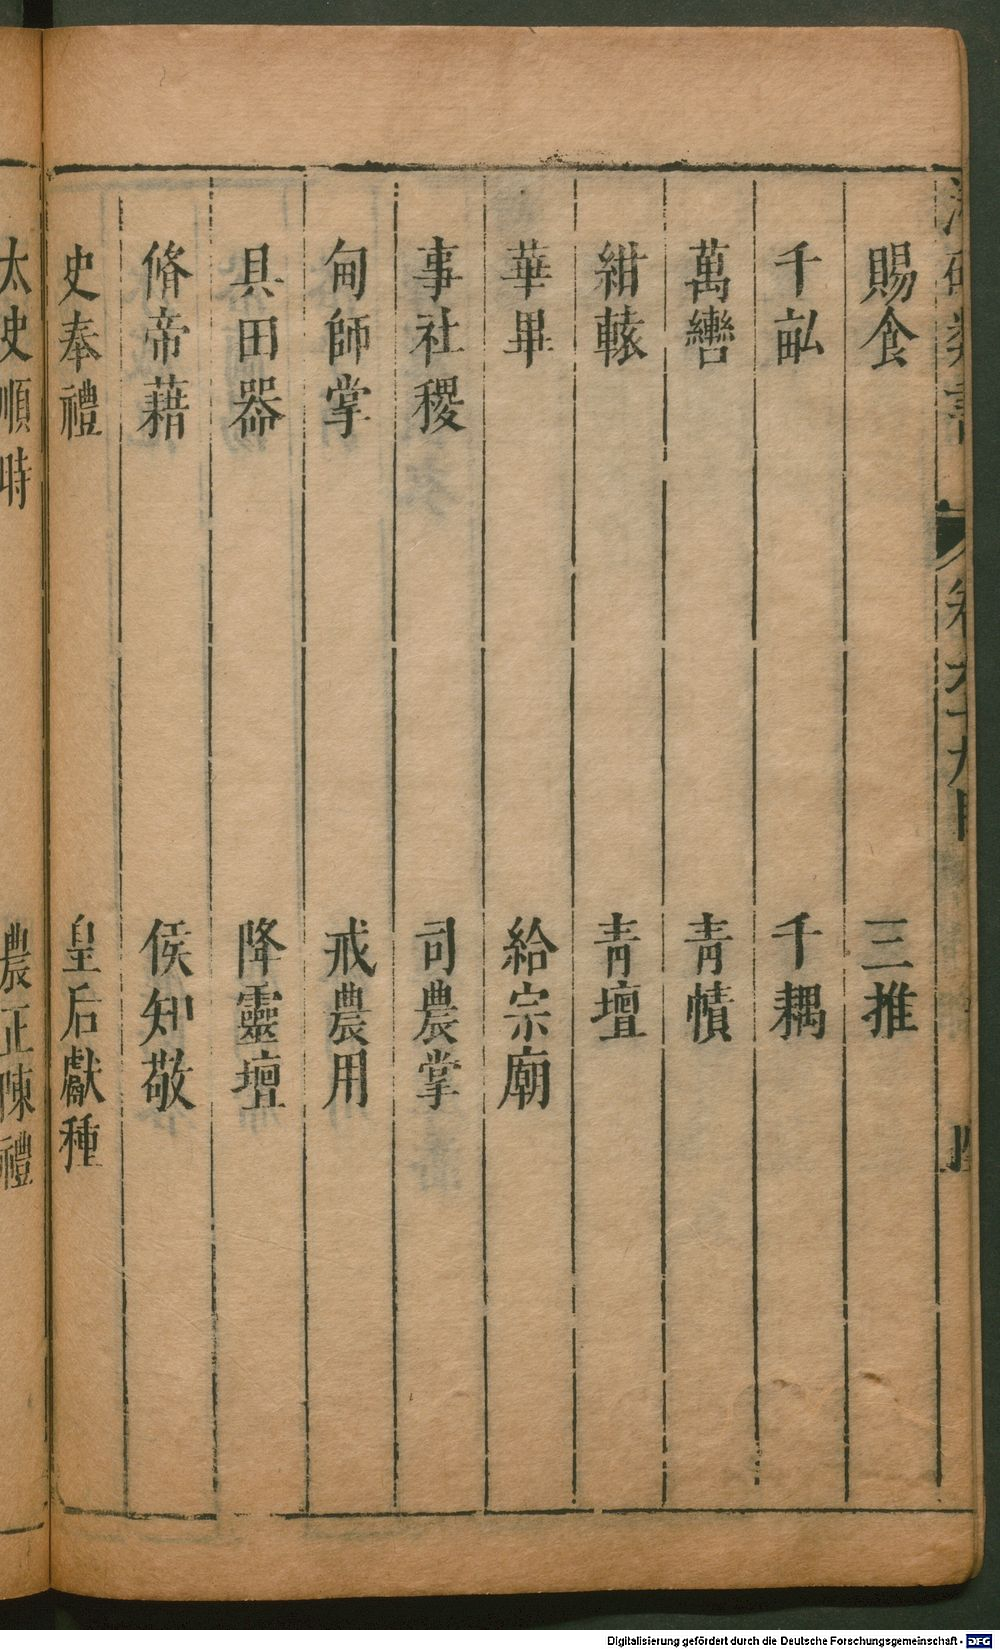 賜食　三推
千畝　千耦
萬轡　青幘
紺轅　青壇
華畢　給宗廟
事社稷　司農掌
甸師掌　戒農用
具田器　降靈壇
脩帝藉　侯知敬
史奉禮　皇后獻種
太史順時　農正陳禮
Digitalisierung gefördert durch die Deutsche Forschungsgemeinschaft - DFG